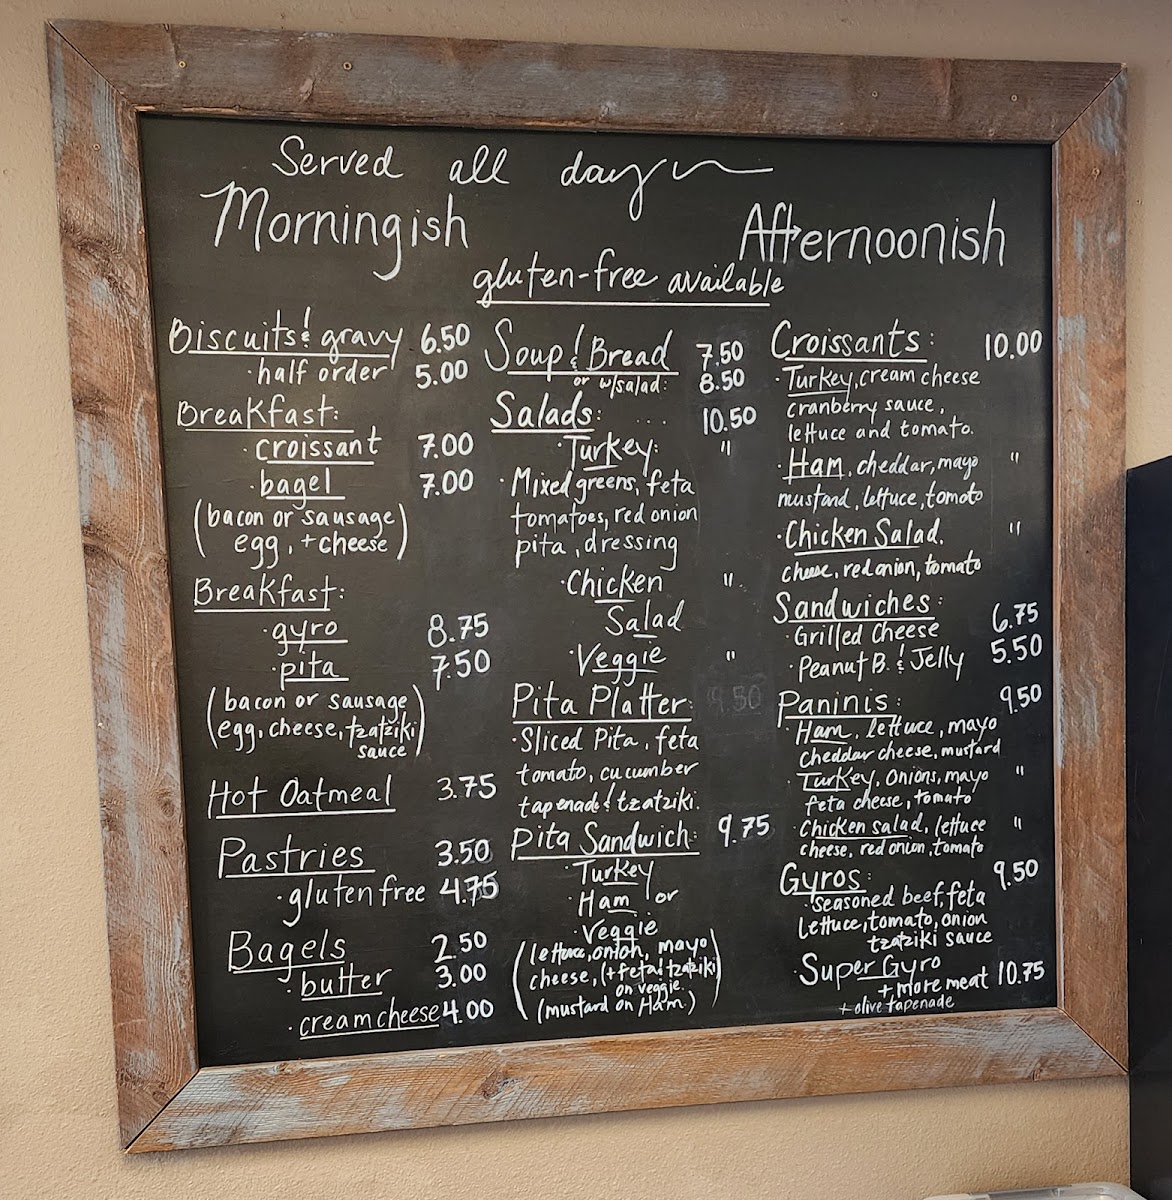 Served all day
Morningish
Afternoonish
gluten-free available
Biscuits & gravy 6.50
· half order 5.00
Breakfast:
· croissant 7.00
· bagel 7.00
(bacon or sausage
egg, + cheese)
Breakfast:
· gyro 8.75
· pita 7.50
(bacon or sausage
egg, cheese, tzatziki
sauce)
Hot Oatmeal 3.75
Pastries 3.50
· gluten free 4.75
Bagels 2.50
· butter 3.00
· cream cheese 4.00
Soup & Bread 7.50
or w/salad: 8.50
Salads: ... 10.50
· Turkey: "
· Mixed greens, feta
tomatoes, red onion
pita, dressing
· Chicken "
Salad
· Veggie "
Pita Platter: 9.50
· Sliced Pita, feta
tomato, cucumber
tapenade & tzatziki.
Pita Sandwich: 9.75
· Turkey
· Ham or
· Veggie
(lettuce, onion, mayo
cheese, (+ feta & tzatziki)
on veggie.
(mustard on Ham)
Croissants: 10.00
· Turkey, cream cheese
cranberry sauce,
lettuce and tomato.
· Ham, cheddar, mayo "
mustard, lettuce, tomato
· Chicken Salad, "
cheese, red onion, tomato
Sandwiches:
· Grilled Cheese 6.75
· Peanut B. & Jelly 5.50
Paninis: 9.50
· Ham, lettuce, mayo
cheddar cheese, mustard
· Turkey, onions, mayo "
feta cheese, tomato
· Chicken salad, lettuce "
cheese, red onion, tomato
Gyros: 9.50
· seasoned beef, feta
lettuce, tomato, onion
tzatziki sauce
· Super Gyro
+ more meat 10.75
+ olive tapenade